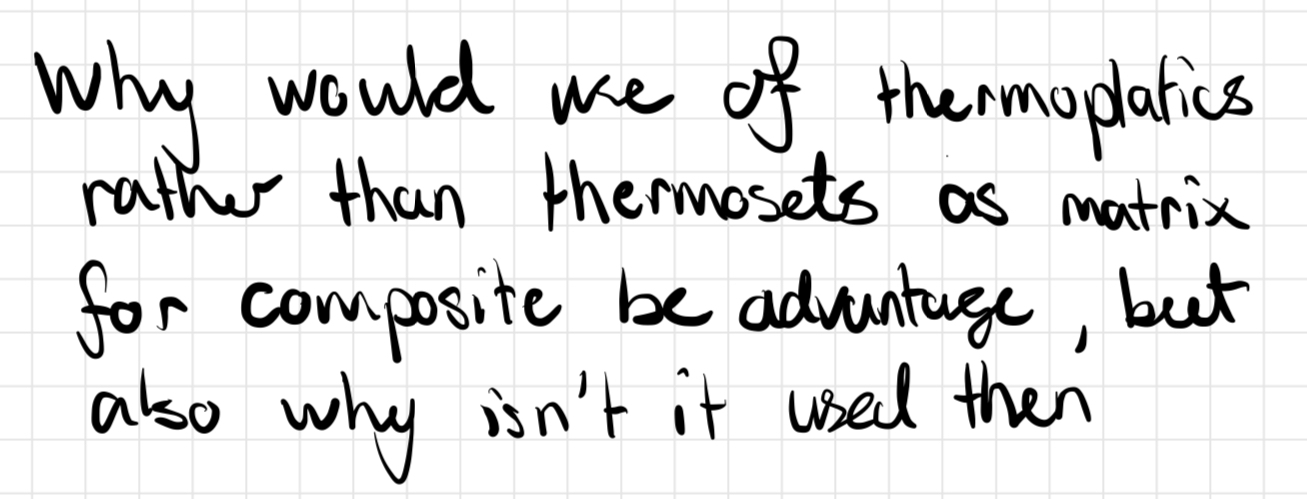 Why would use of thermoplatics
rather than thermosets as matrix
for composite be advantage, but
also why isn't it used then